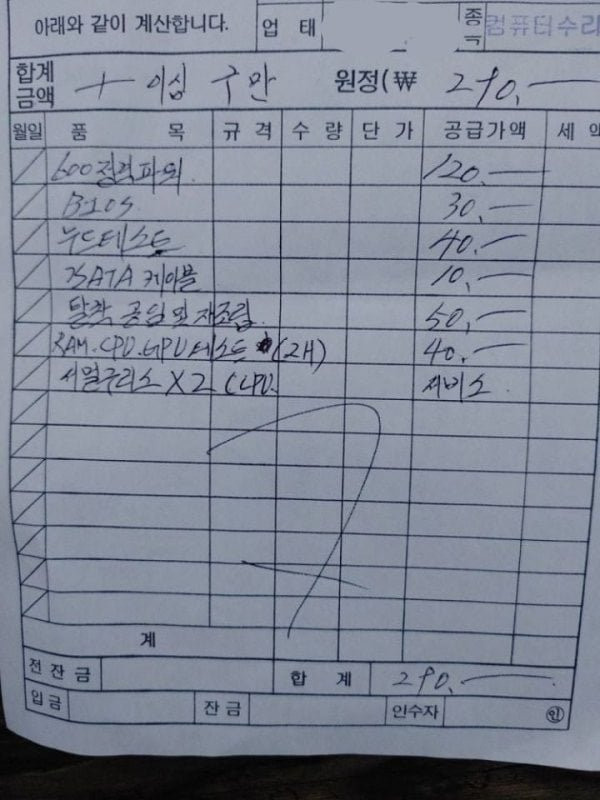 아래와 같이 계산합니다. 업 태 종 컴퓨터수리
합계금액 十 이십 구만 원정(₩ 290.—
월일 품 목 규 격 수 량 단 가 공급가액 세 액
600정격파워 120.—
BIOS 30.—
누드테스트 40.—
SATA 케이블 10.—
탈착 공임 및 재조립. 50.—
RAM.CPU.GPU테스트 (2H) 40.—
써멀구리스 X2 (CPU. 서비스.
계
전 잔 금 합 계 290.—
입금 잔 금 인수자 ㊞